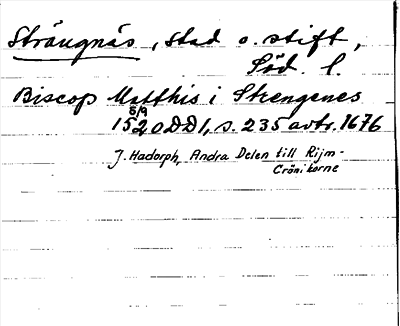 Strängnäs, stad o. stift,
Söd. l.
Biscop Matthis i Strengenes
5/9
1520 DD1, s. 235 avtr. 1676
J. Hadorph, Andra Delen till Rijm-
Crönikorne